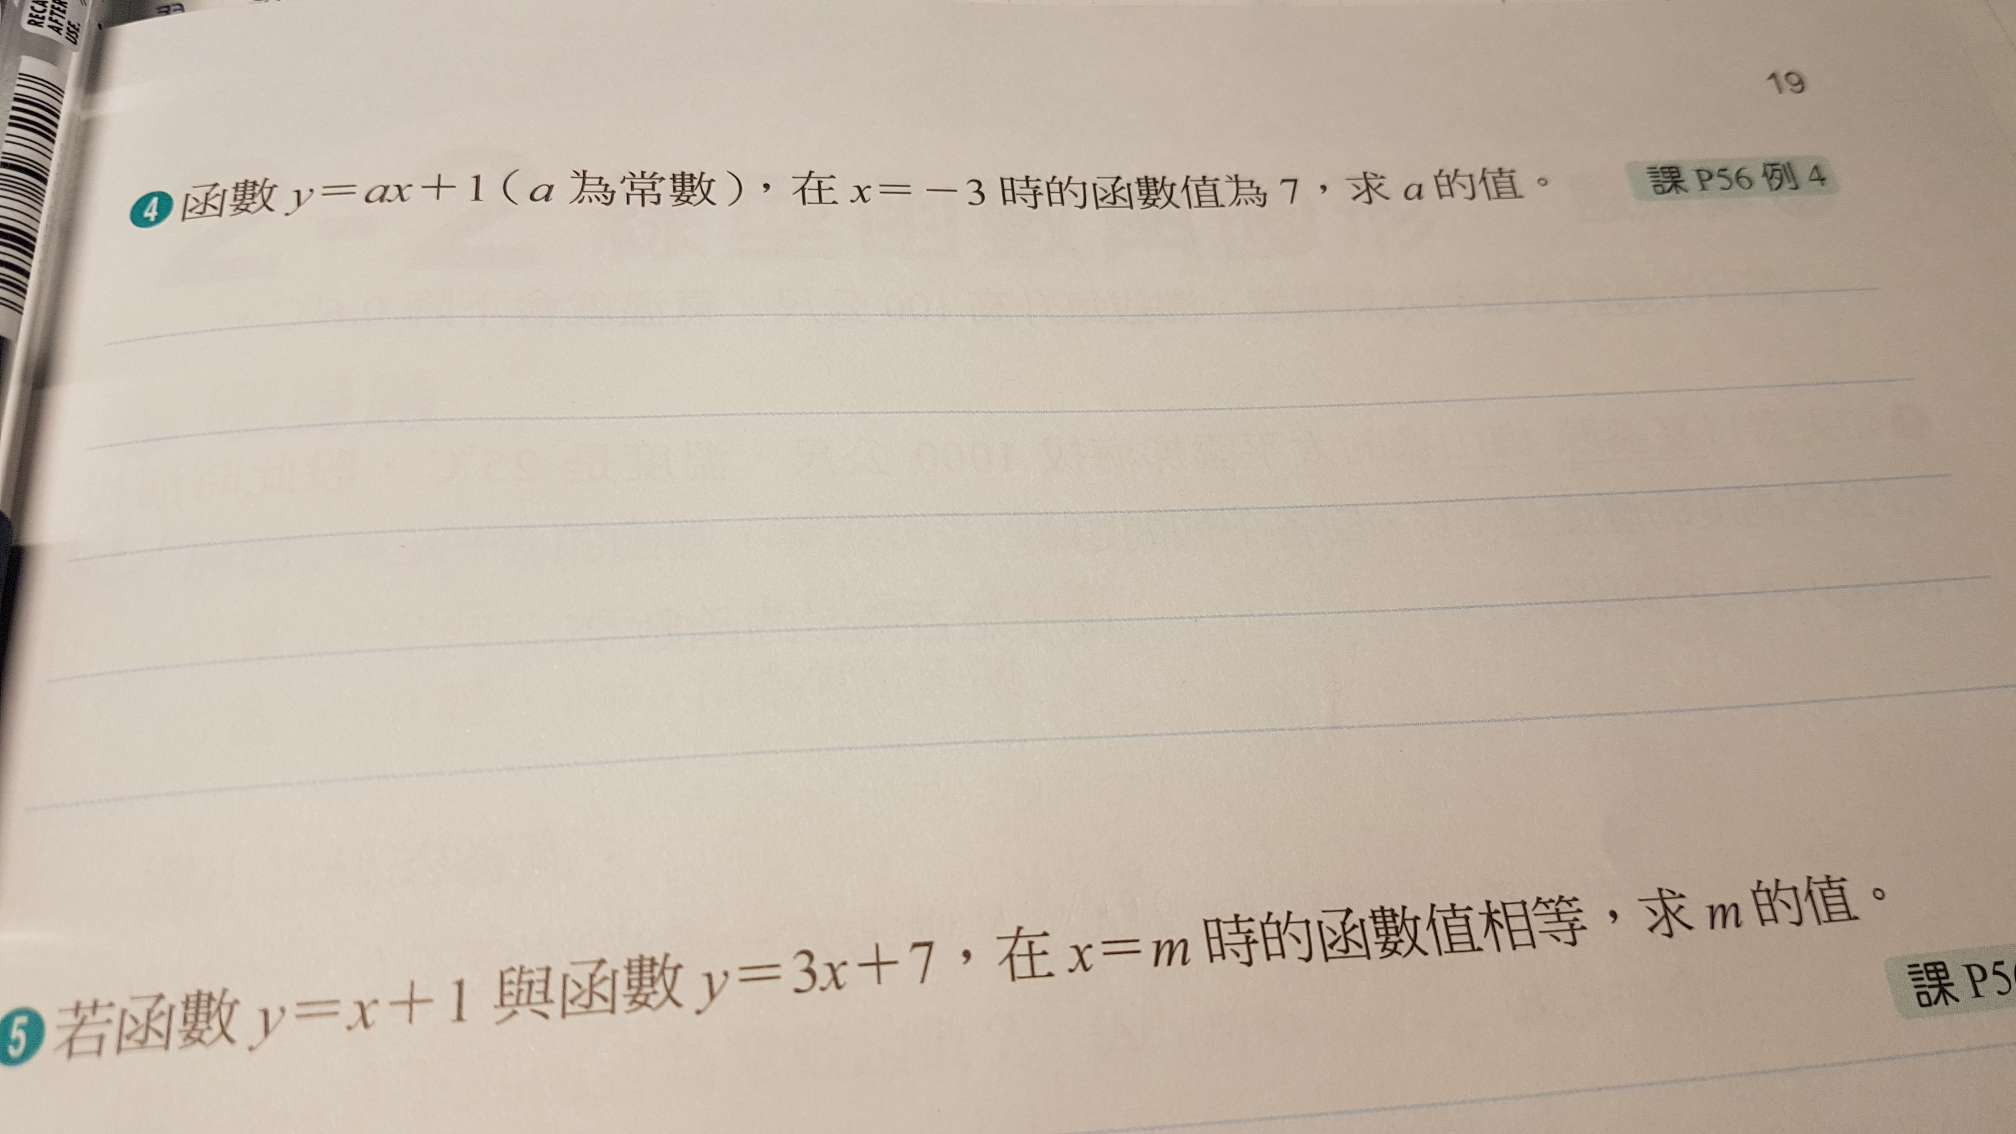 RECA
AFTER
USE.
19
4 函數 y=ax+1(a 為常數),在 x=-3 時的函數值為 7,求 a 的值。 課 P56 例 4
5 若函數 y=x+1 與函數 y=3x+7,在 x=m 時的函數值相等,求 m 的值。
課 P5